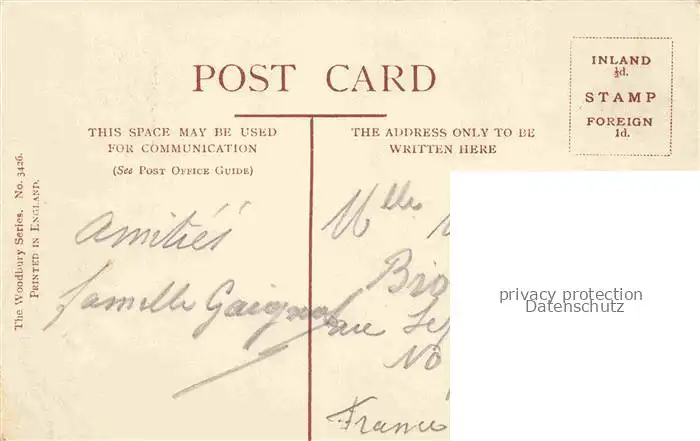 POST CARD
INLAND
½d.
STAMP
FOREIGN
1d.
THIS SPACE MAY BE USED
FOR COMMUNICATION
(See Post Office Guide)
THE ADDRESS ONLY TO BE
WRITTEN HERE
The Woodbury Series. No. 3426.
Printed in England.
Amitiés
famille
Mlle
France
privacy protection
Datenschutz